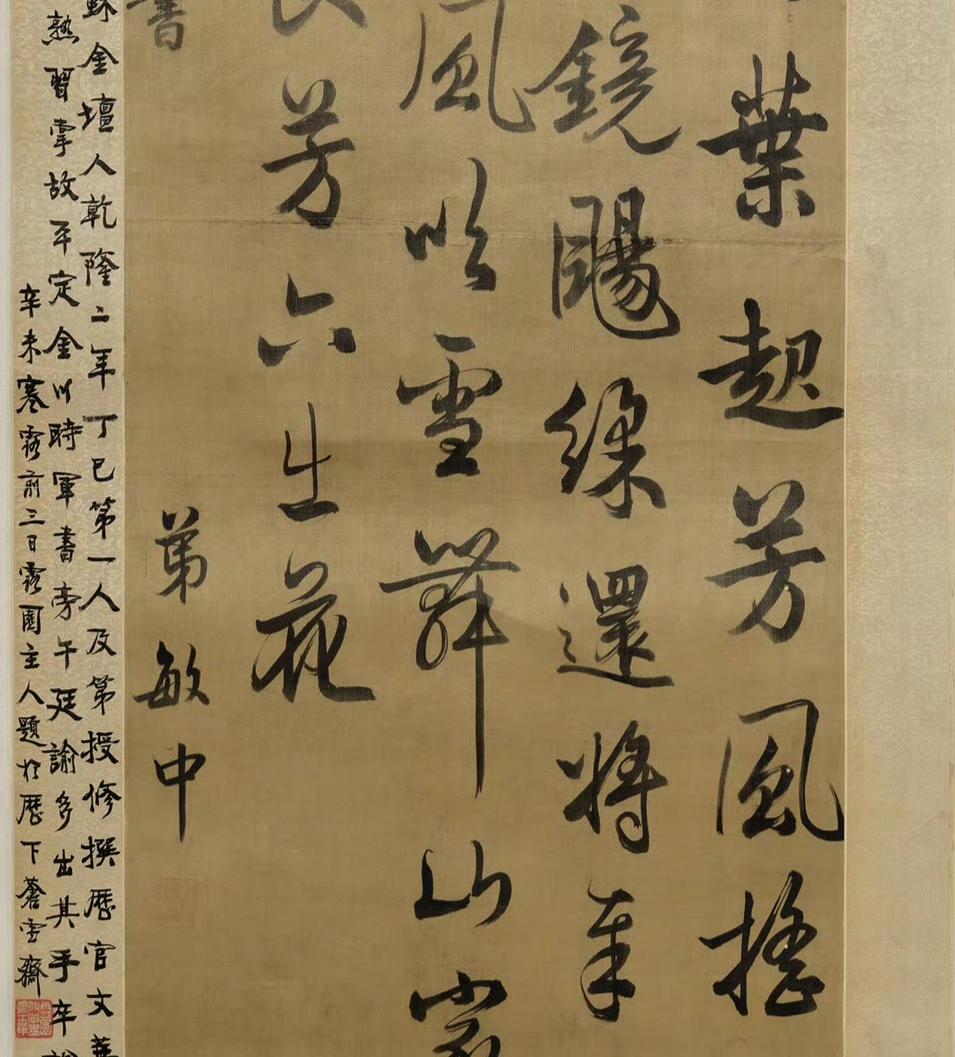 葉起芳風搖
鏡颺緑還將奉
風吹雪舞山家
芳六生花
書
弟敏中
蘇金壇人乾隆二年丁巳第一人及第授修撰歷官文華
熟習掌故平定金川時軍書旁午廷諭多出其手卒
辛未寒露前三日霧園主人題於歷下蒼雪齋